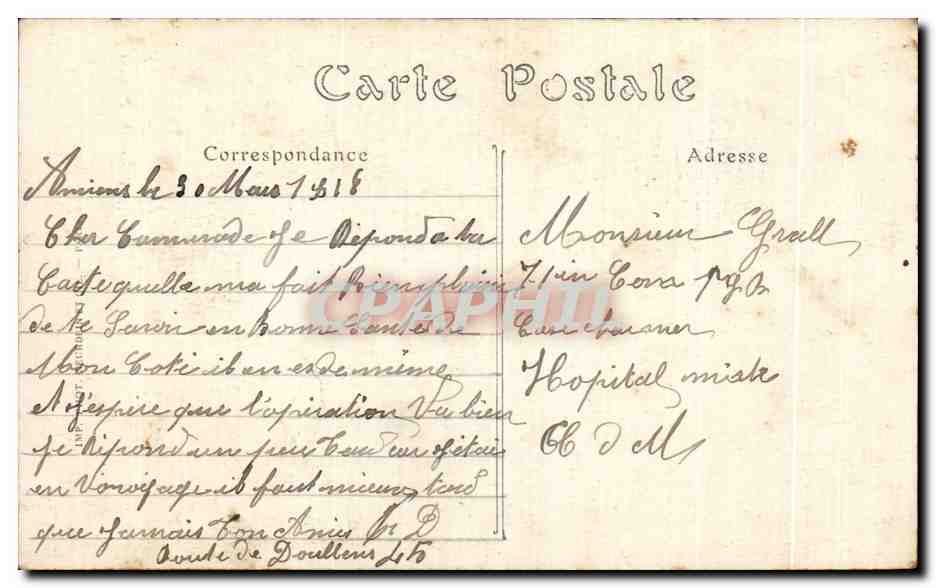 Carte Postale
Correspondance
Adresse
Amiens le 30 Mars 1918
Cher Camarade Je Répond a ta
Carte quelle ma fait Bien plaisir
de te Savoir en Bonne Santé de
Mon Coté il en es de même
et J'espire que l'opiration Va bien
Je Répond un peu Tard car J'étai
en Voroyage il faut mieux tard
que Jamais Ton Amis
Route de Doullens 45
Monsieur Grall
71 in
Hopital mixte
CPAPHIL
IMP.